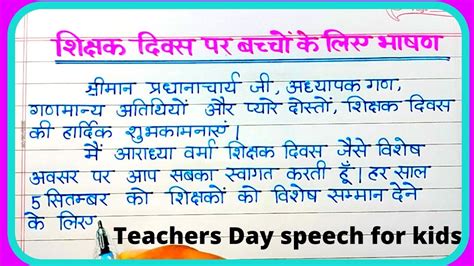 शिक्षक दिवस पर बच्चों के लिए भाषण
श्रीमान प्रधानाचार्य जी, अध्यापक गण,
गणमान्य अतिथियों और प्यारे दोस्तों, शिक्षक दिवस
की हार्दिक शुभकामनाएं।
मैं आराध्या वर्मा शिक्षक दिवस जैसे विशेष
अवसर पर आप सबका स्वागत करती हूँ। हर साल
5 सितम्बर को शिक्षकों को विशेष सम्मान देने
के लिए
Teachers Day speech for kids